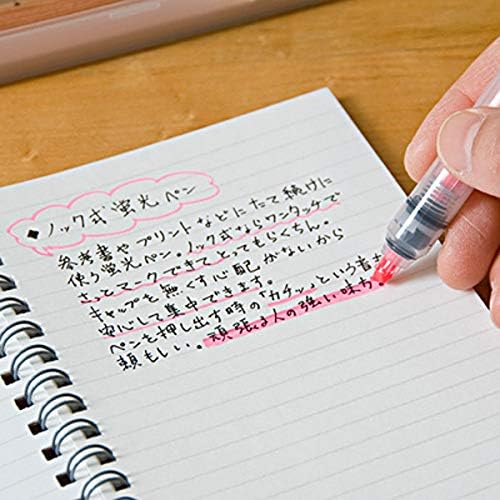 ◆ノック式蛍光ペン
参考書やプリントなどにたて続けに
使う蛍光ペン。ノック式ならワンタッチで
さっとマークできてとってもらくちん。
キャップを無くす心配がないから
安心して集中できます。
ペンを押し出す時の「カチッ」という音が
頼もしい。頑張る人の強い味方。